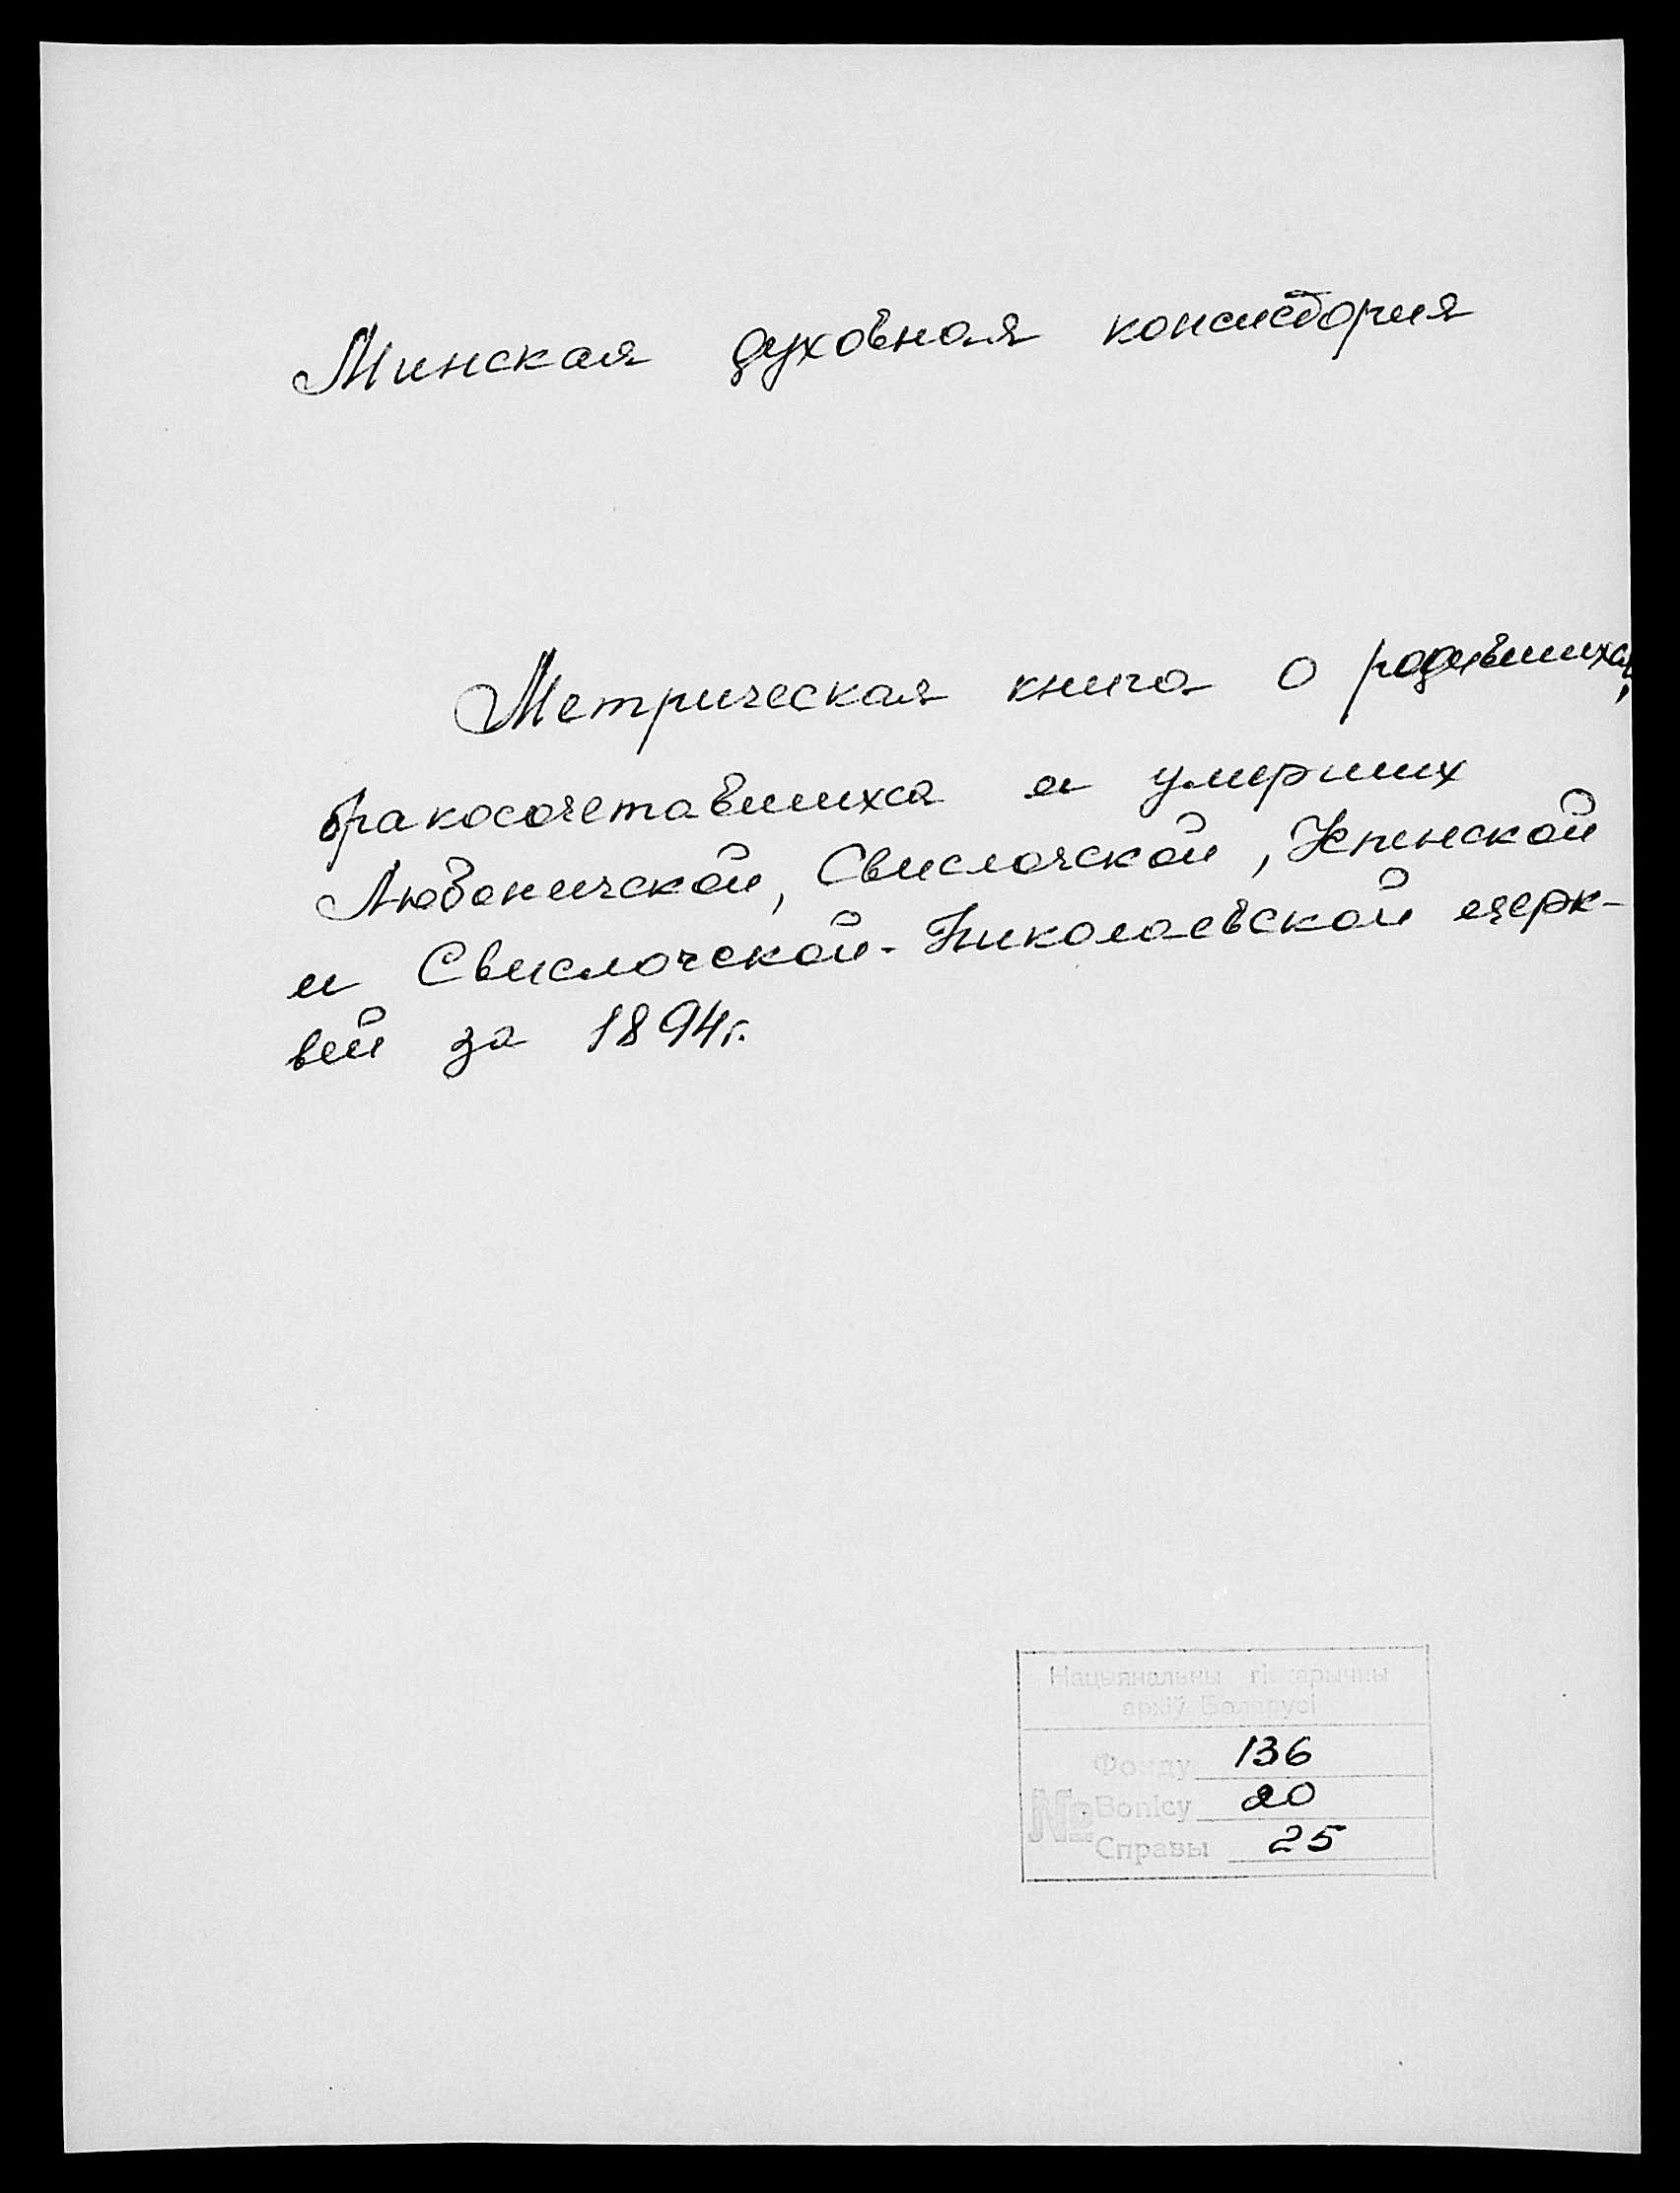 Минская духовная консистория
Метрическая книга о родившихся,
бракосочетавшихся и умерших
Любоничской, Свислочской,
и Свислочской-Николаевской церк-
вей за 1894г.
Нацыянальны гістарычны
архіў Беларусі
Фонду 136
№ Вопісу 20
Справы 25